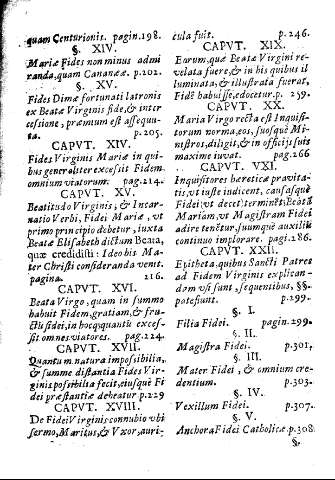 quam Centurionis. pagin.198.
§. XIV.
Mariæ Fides non minus admi
randa, quam Cananææ. p.202.
§. XV.
Fides Dimæ fortunati latronis
ex Beatæ Virginis fide, & inter
cessione, præmium est assequu-
ta. p.205.
CAPVT. XIV.
Fides Virginis Mariæ in qui-
bus generaliter excessit Fidem
omnium viatorum. pag.214.
CAPVT. XV.
Beatitudo Virginis, & Incar-
natio Verbi, Fidei Mariæ, vt
primo principio debetur, iuxta
Beatæ Elisabeth dictum Beata,
quæ credidisti: Ideo his Ma-
ter Christi consideranda venit.
pagina. 216.
CAPVT. XVI.
Beata Virgo, quam in summo
habuit Fidem, gratiam, & fru-
ctus fidei, in hoc, quantũ exces-
sit omnes viatores. pag.224.
CAPVT. XVII.
Quantum natura impossibilia,
& summe distantia Fides Vir-
ginis possibilia fecit, eiusquè Fi
dei præstantiæ debeatur p.229
CAPVT. XVIII.
De Fidei Virginis connubio vbi
sermo, Maritus, & Vxor, auri-
cula fuit. p.246.
CAPVT. XIX.
Eorum, quæ Beatæ Virgini re-
velata fuere, & in his quibus il
luminata, & illustrata fuerat,
Fidẽ habuisse, edocetur. p. 259.
CAPVT. XX.
Maria Virgo recta est Inquisi-
torum norma, eos, suosquè Mi-
nistros, diligit, & in officijs suis
maxime iuvat. pag.266
CAPVT. VXI.
Inquisitores hereticæ pravita-
tis, vt iuste indicent, causasquè
Fidei vt decet terminẽt, Beatã
Mariam, vt Magistram Fidei
adire tenẽtur, suumquè auxiliũ
continuo implorare. pagi.286.
CAPVT. XXII.
Epitheta, quibus Sancti Patres
ad Fidem Virginis explican-
dam vsi sunt, sequentibus, §§.
potefiunt. p.299.
§. I.
Filia Fidei. pagin.299.
§. II.
Magistra Fidei. p.301.
§. III.
Mater Fidei, & omnium cre-
dentium. p.303.
§. IV.
Vexillum Fidei. p.307.
§. V.
Anchora Fidei Catholicæ. p.308.
§.